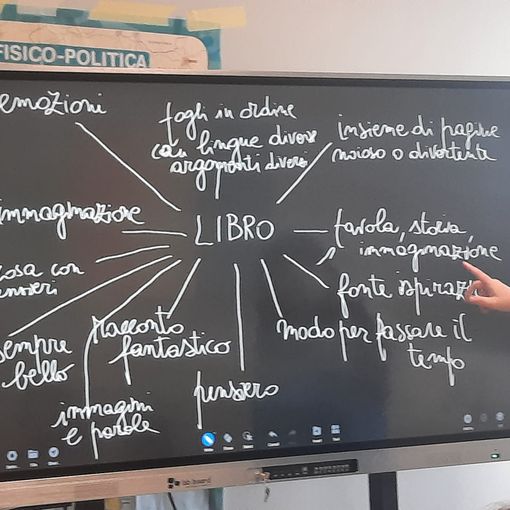 FISICO-POLITICA
emozioni
fogli in ordine
con lingue diverse
argomenti diversi
insieme di pagine
noioso o divertente
immaginazione
LIBRO
favola, storia,
immaginazione
cosa con
pensieri
fonte ispiraz
sempre
bello
Racconto
fantastico
modo per passare il
tempo
immagini
e parole
pensiero
lab board